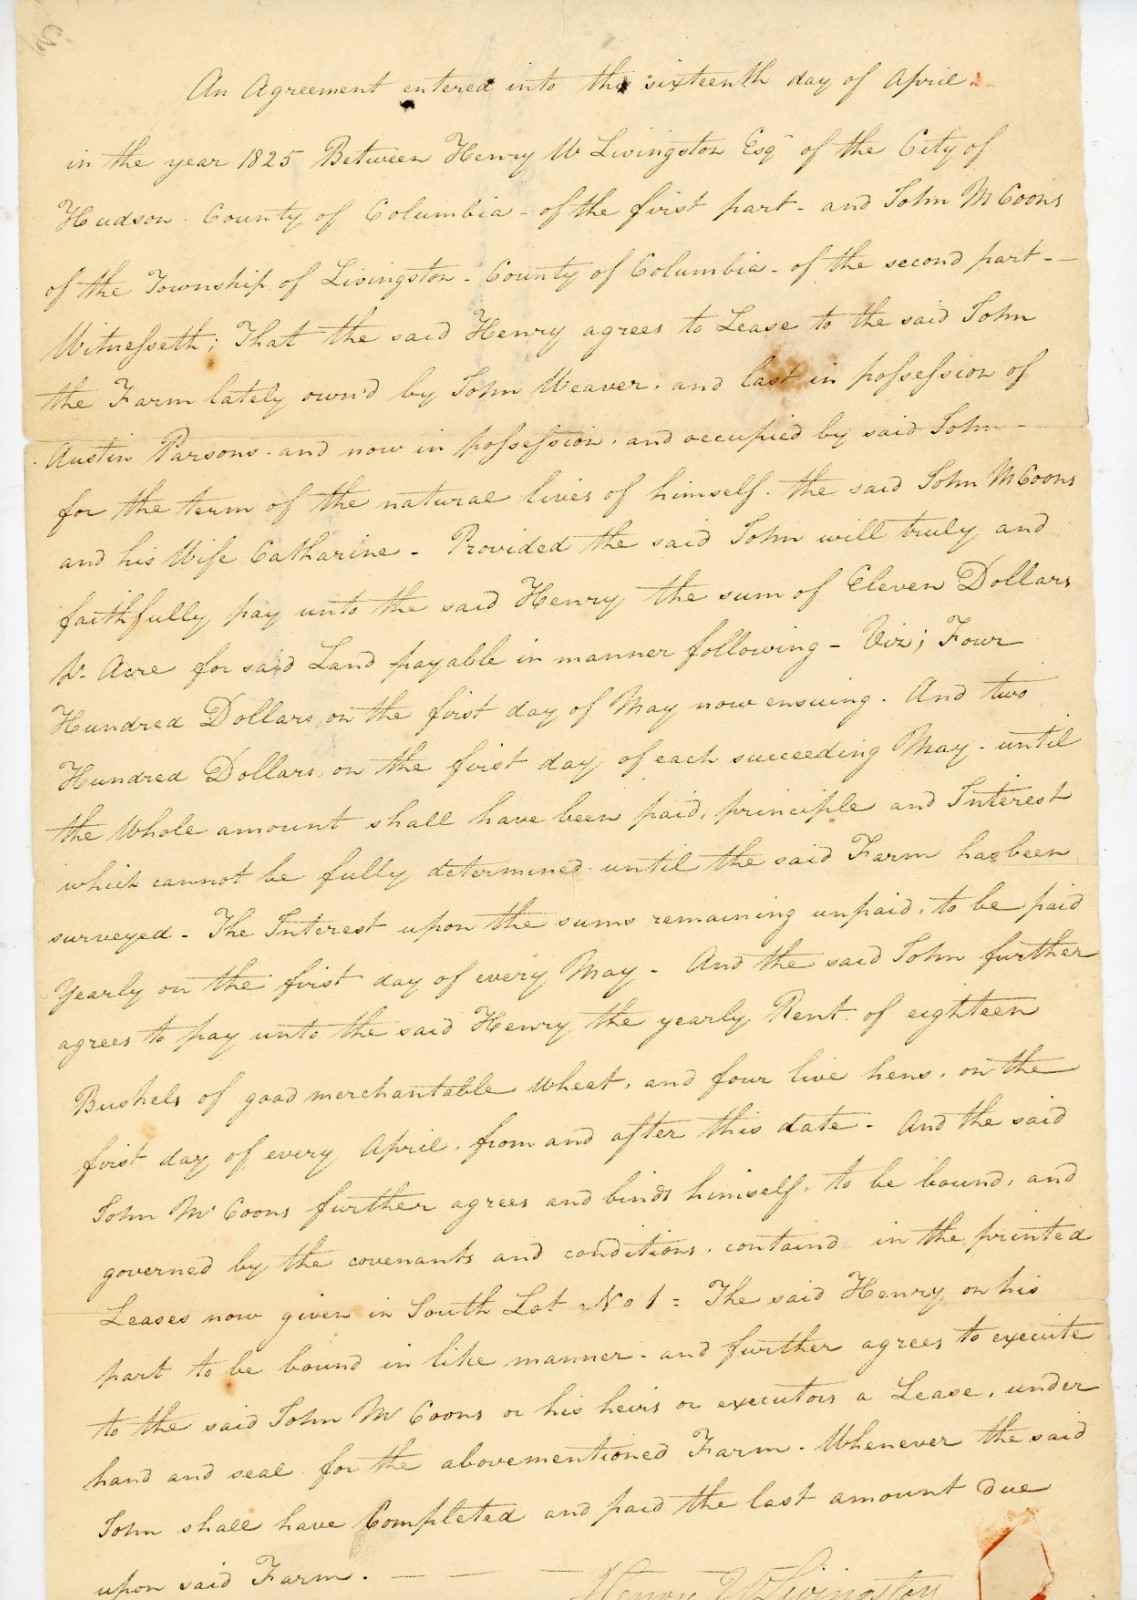 An Agreement entered into this sixteenth day of April.
in the year 1825 Between Henry W Livingston Esqr of the City of
Hudson - County of Columbia - of the first part - and John M Coons
of the Township of Livingston - County of Columbia - of the second part - -
Witnesseth; That the said Henry agrees to Lease to the said John
the Farm lately own'd by John Weaver. and last in possession of
Austin Parsons. and now in possession. and occupied by said John -
for the term of the natural lives of himself. the said John M Coons
and his Wife Catharine - Provided the said John will truly and
faithfully pay unto the said Henry the sum of Eleven Dollars
Acre for said Land payable in manner following - Viz; Four
Hundred Dollars on the first day of May now ensuing. And two
Hundred Dollars on the first day of each succeeding May - until
the Whole amount shall have been paid, principle and Interest
which cannot be fully determined until the said Farm has been
surveyed - The Interest upon the sums remaining unpaid. to be paid
Yearly on the first day of every May - And the said John further
agrees to pay unto the said Henry the yearly Rent of eighteen
Bushels of good merchantable Wheat. and four live hens. on the
first day of every April. from and after this date - And the said
John M Coons further agrees and binds himself. to be bound, and
governed by the covenants and conditions. containd in the printed
Leases now given in South Lot No 1 = The said Henry on his
part to be bound in like manner - and further agrees to execute
to the said John M Coons or his heirs or executors a Lease, under
hand and seal for the abovementioned Farm - Whenever the said
John shall have Completed and paid the last amount due
upon said Farm. - - -
Henry W Livingston